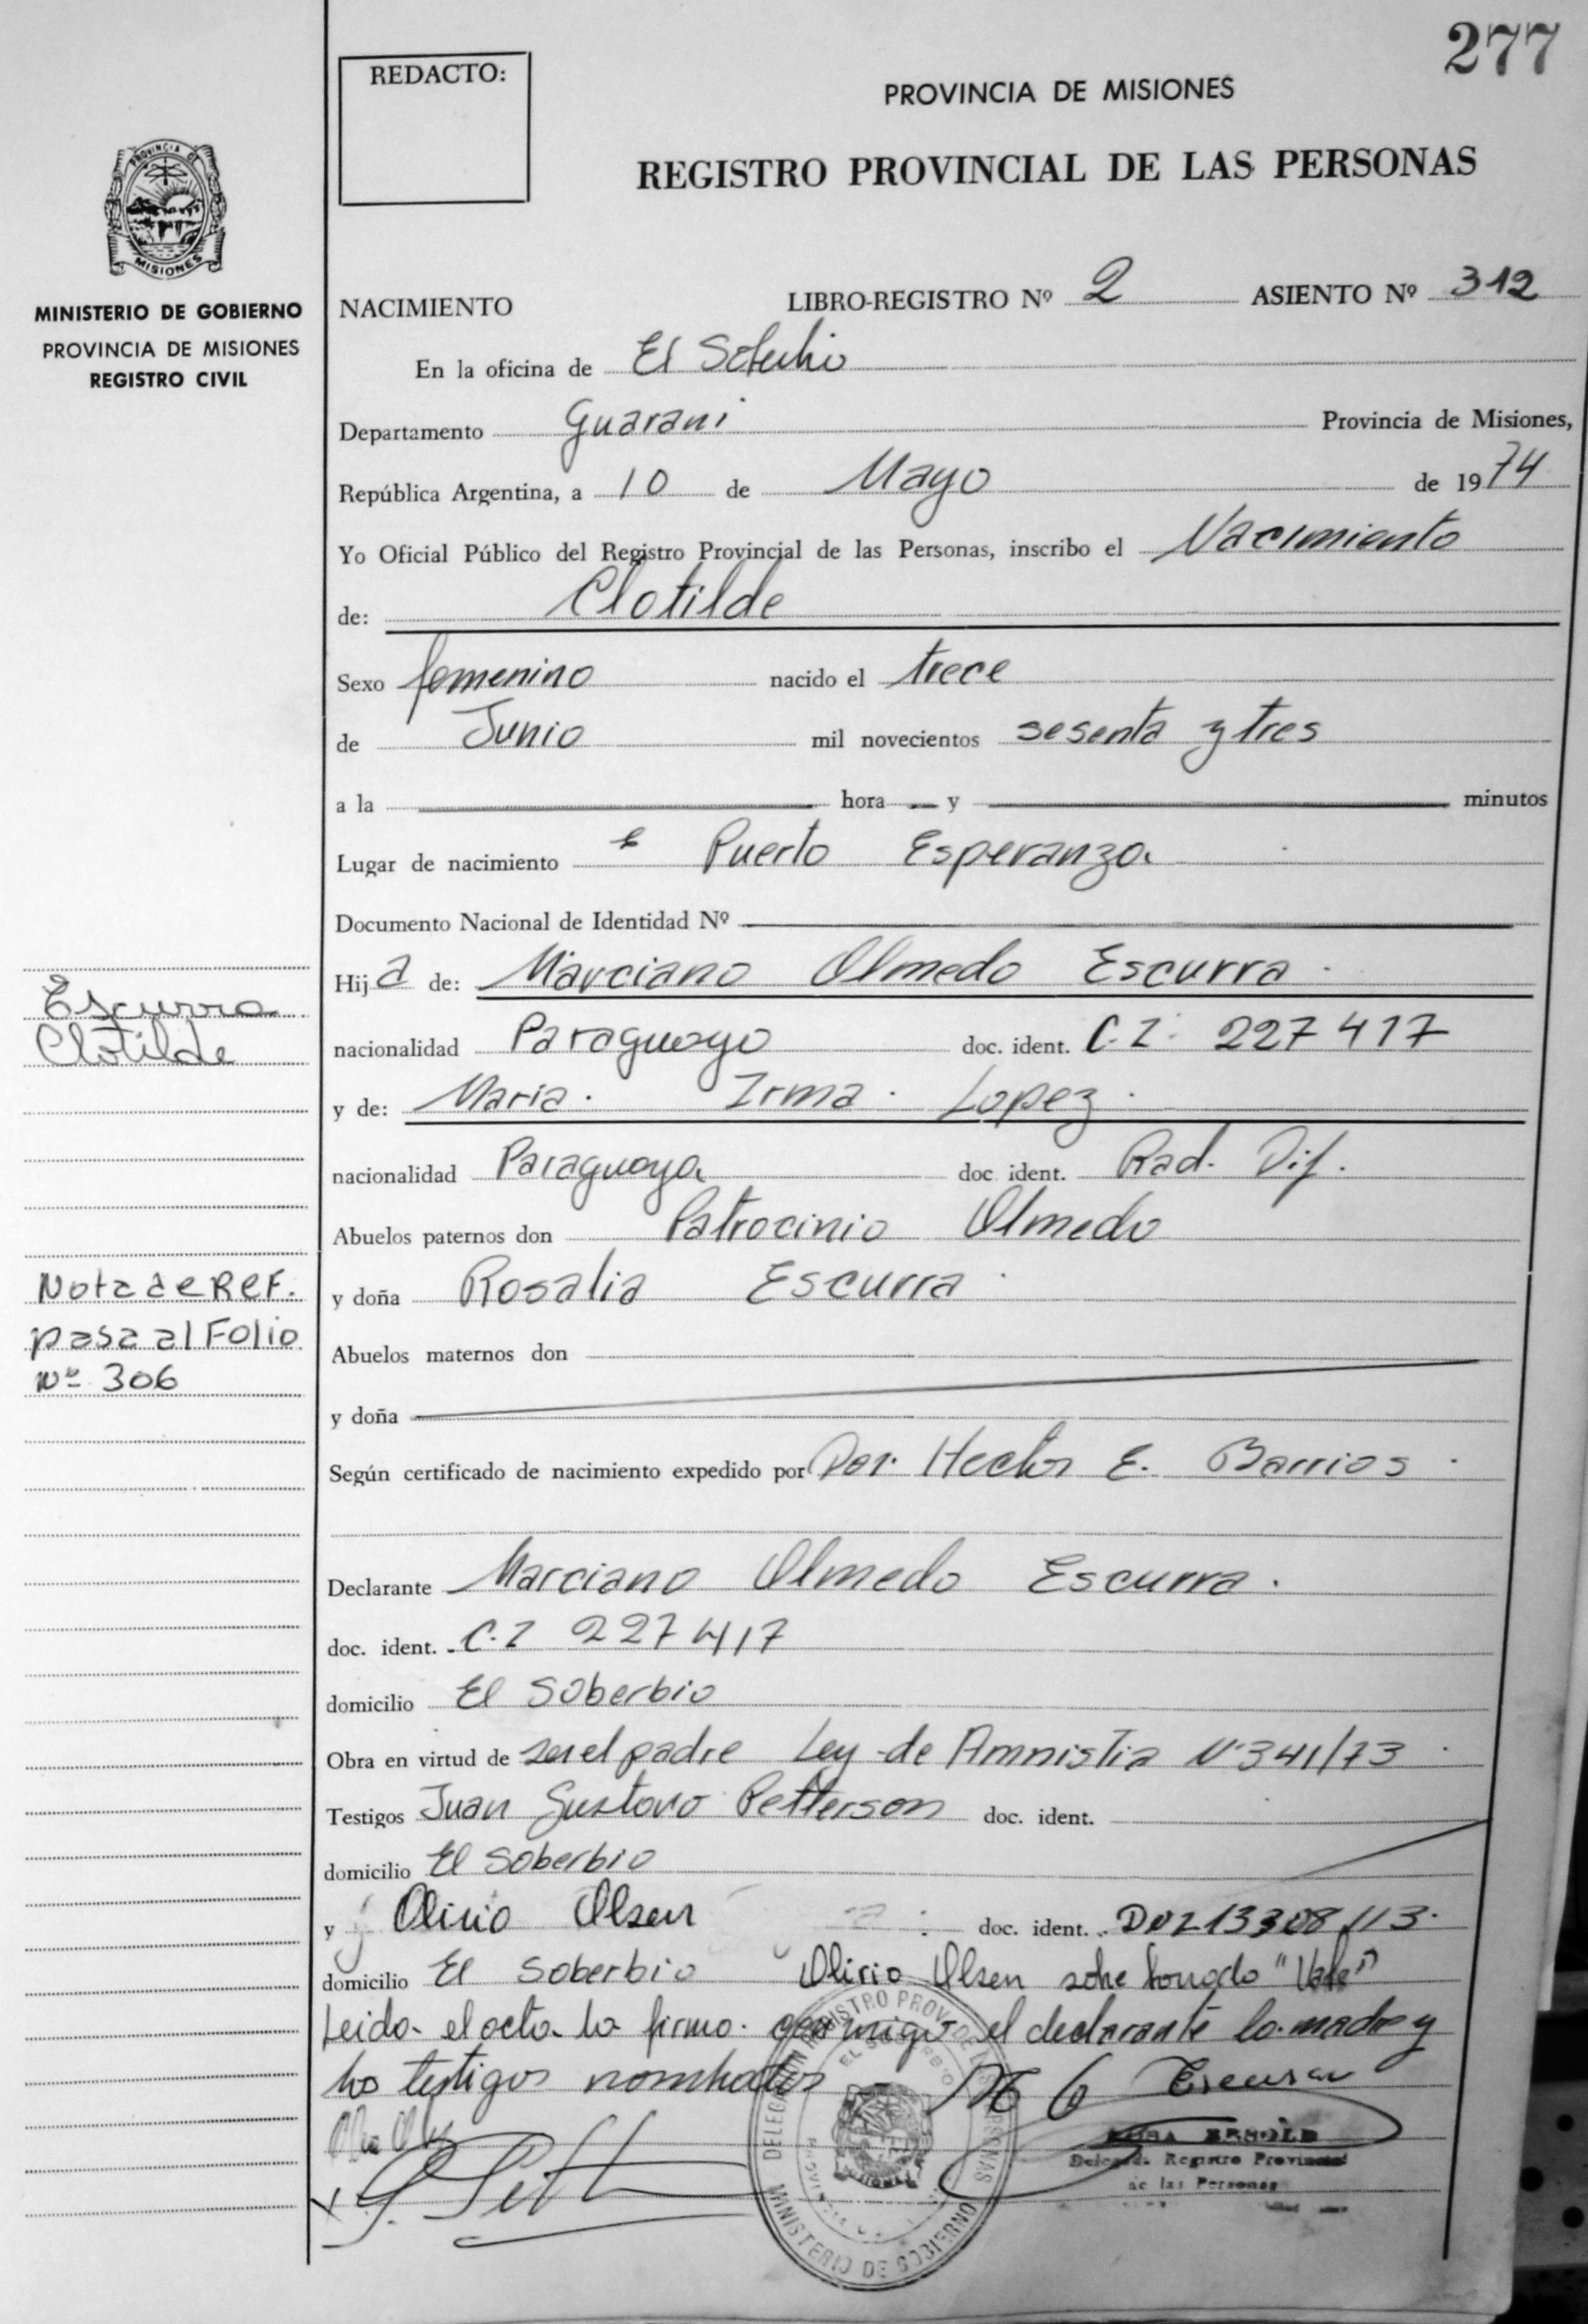 277
REDACTO:
PROVINCIA DE MISIONES
REGISTRO PROVINCIAL DE LAS PERSONAS
PROVINCIA DE
MISIONES
MINISTERIO DE GOBIERNO
PROVINCIA DE MISIONES
REGISTRO CIVIL
NACIMIENTO LIBRO-REGISTRO Nº 2 ASIENTO Nº 312
En la oficina de El Soberbio
Departamento Guarani Provincia de Misiones,
República Argentina, a 10 de Mayo de 1974
Yo Oficial Público del Registro Provincial de las Personas, inscribo el Nacimiento
de: Clotilde
Sexo femenino nacido el trece
de Junio mil novecientos sesenta y tres
a la hora y minutos
Lugar de nacimiento Puerto Esperanza
Documento Nacional de Identidad Nº
Hija de: Marciano Olmedo Escurra.
Escurra
Clotilde
nacionalidad Paraguayo doc. ident. C.I. 227417
y de: Maria. Irma. Lopez.
nacionalidad Paraguaya doc. ident. Rad. Dif.
Abuelos paternos don Patrocinio Olmedo
y doña Rosalia Escurra.
Nota de REF.
pasa al Folio
Nº 306
Abuelos maternos don
y doña
Según certificado de nacimiento expedido por Dor. Hector E. Barrios.
Declarante Marciano Olmedo Escurra.
doc. ident. C.I 227417
domicilio El Soberbio
Obra en virtud de ser el padre Ley de Amnistia Nº 341/73.
Testigos Juan Gustavo Petterson doc. ident.
domicilio El Soberbio
y Olirio Olsen doc. ident.
domicilio El Soberbio Olirio Olsen sobre borrado "Vale"
Leida el acta la firma conmigo el declarante la madre y
los testigos nombrados - M O Escurra
DELEGACION REGISTRO PROV. DE LAS PERSONAS
EL SOBERBIO
MISIONES
MINISTERIO DE GOBIERNO
Registro Provincial
de las Personas